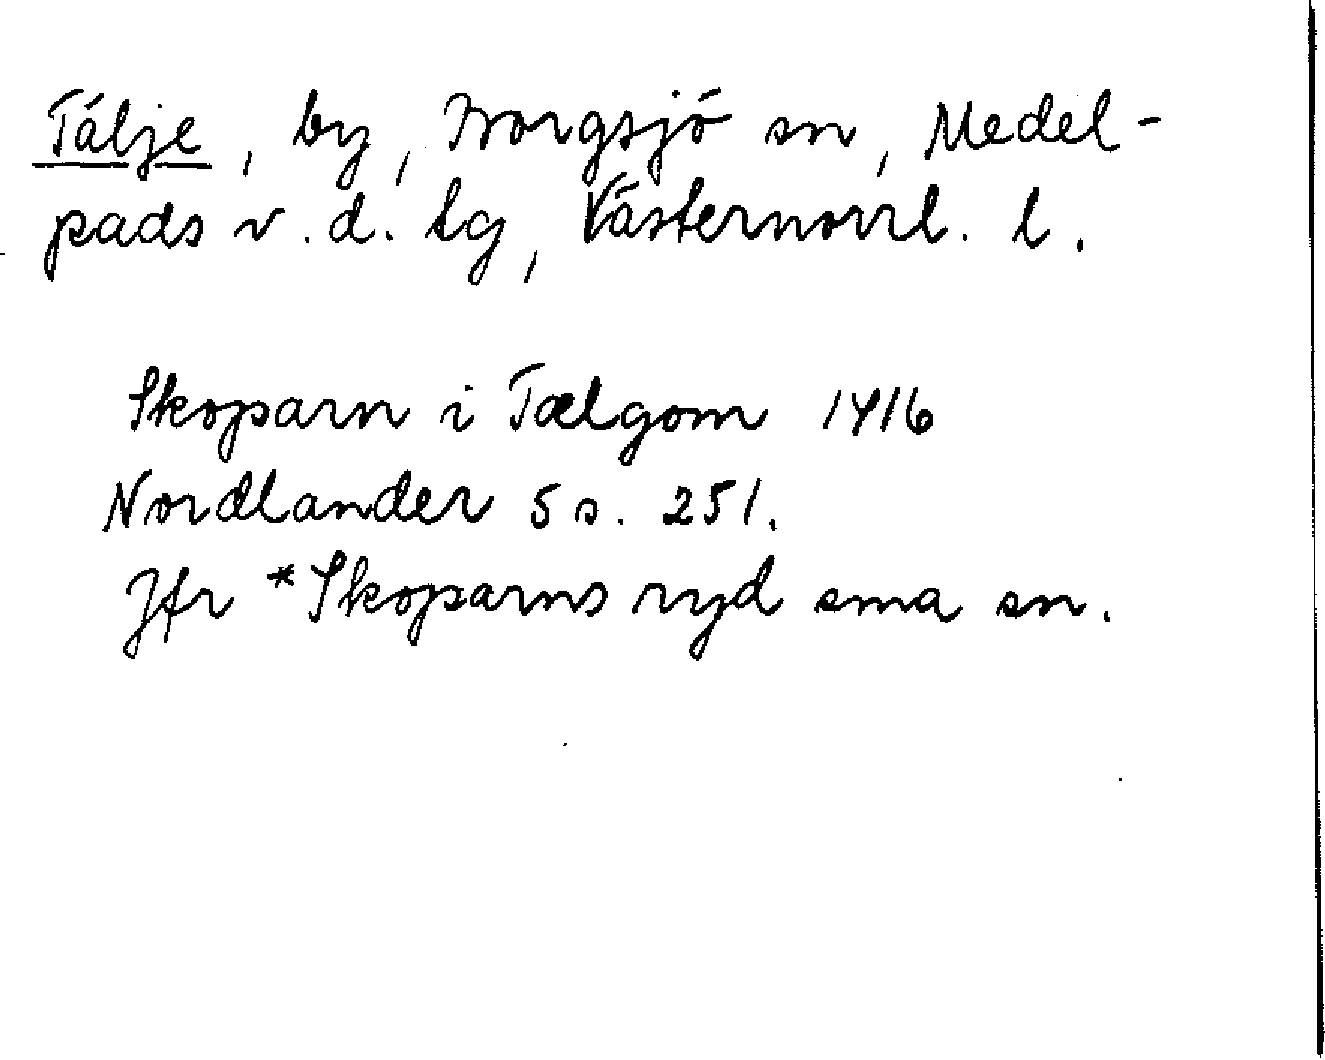 Tälje, by, Borgsjö sn, Medel-
pads v. d. tg, Västernorrl. l.
Skoparn i Tælgom 1416
Nordlander 5 s. 251.
Jfr *Skoparns ryd sma sn.